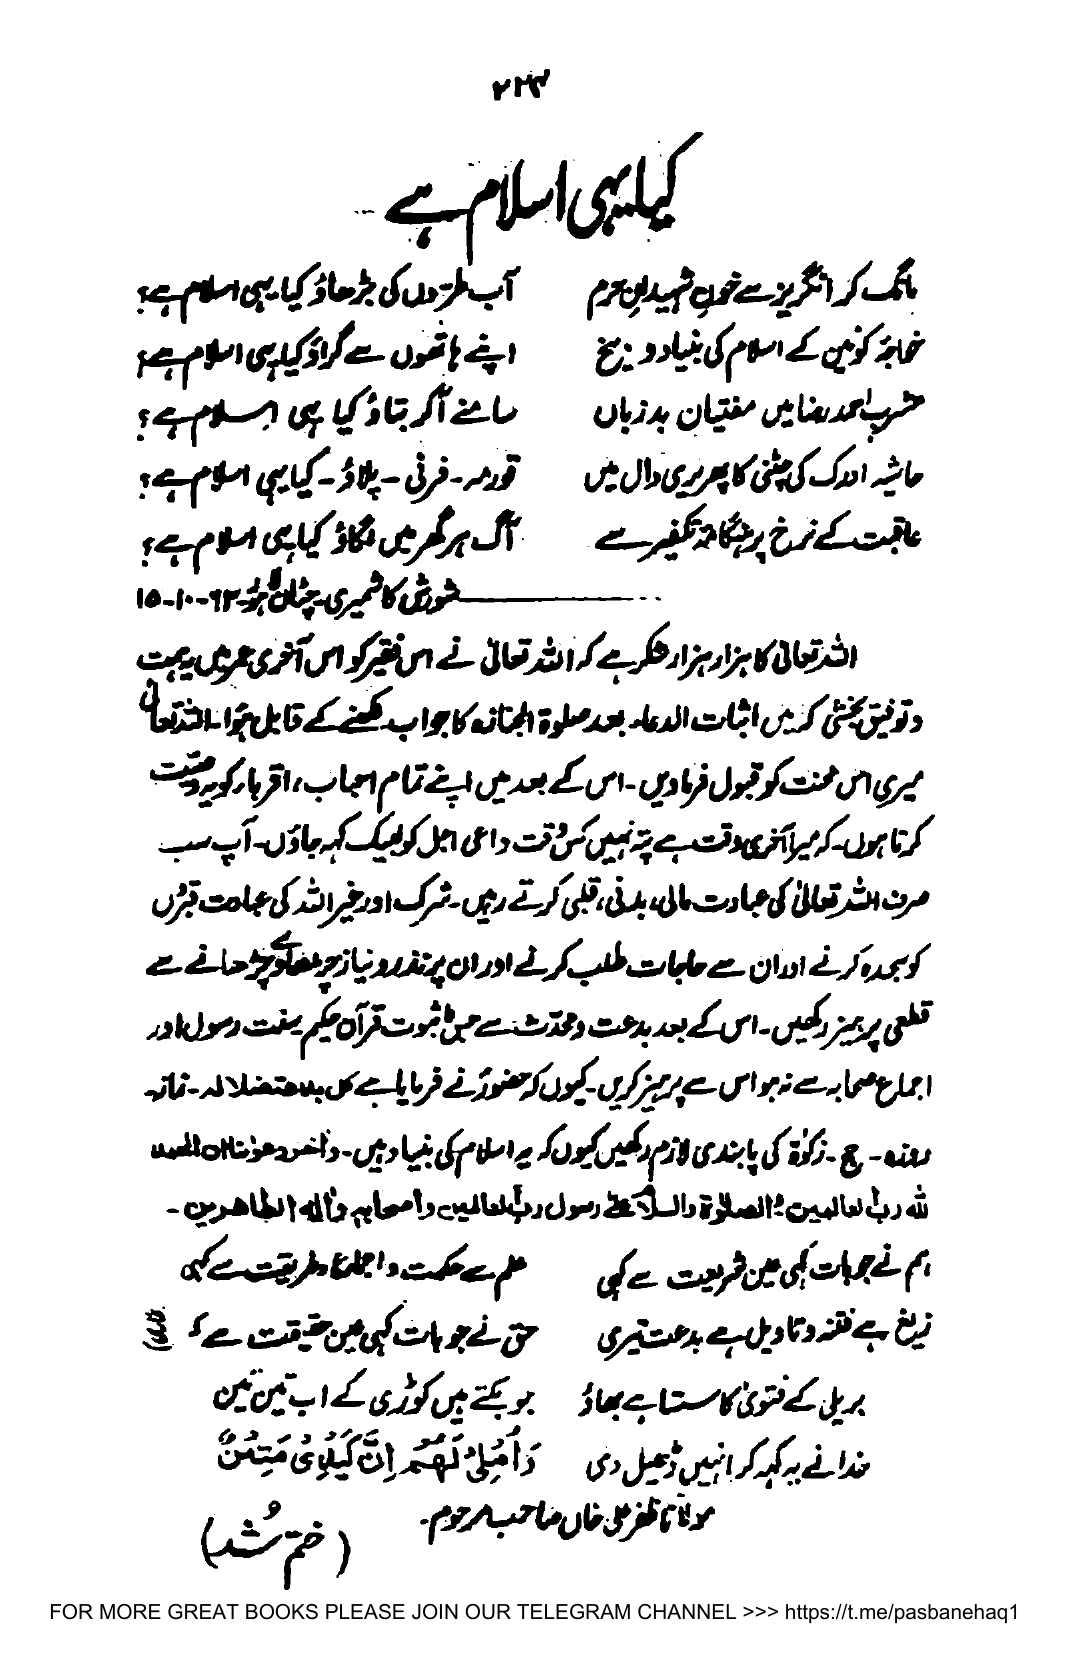 ۲۲۳
کیا یہی اسلام ہے
مانگ کر انگریز سے خونِ شہیدانِ حرم آب طرّوں کی بڑھاؤ کیا یہی اسلام ہے؟
خواجۂ کونین کے اسلام کی بنیاد و بیخ اپنے ہاتھوں سے گراؤ کیا یہی اسلام ہے؟
مشربِ احمد رضا میں مفتیان بد زباں سامنے آکر بتاؤ کیا یہی اسلام ہے؟
حاشیہ ادرک کی چٹنی کا پھریری دال میں قورمہ - فرنی - پلاؤ - کیا یہی اسلام ہے؟
عاقبت کے نرخ پر ہنگامۂ تکفیر سے آگ ہر گھر میں لگاؤ کیا یہی اسلام ہے؟
شورش کاشمیری - چٹان لاہور - ۶۲-۱۰-۱۵
اللہ تعالیٰ کا ہزار ہزار شکر ہے کہ اللہ تعالیٰ نے اس فقیر کو اس آخری عمر میں یہ ہمت
و توفیق بخشی کہ میں اثبات الدعاء بعد صلوٰۃ الجنازہ کا جواب لکھنے کے قابل ہوا - اللہ تعالیٰ
میری اس محنت کو قبول فرماویں - اس کے بعد میں اپنے تمام احباب، اقرباء کو یہ وصیت
کرتا ہوں - کہ میرا آخری وقت ہے پتہ نہیں کس وقت داعی اجل کو لبیک کہہ جاؤں - آپ سب
صرف اللہ تعالیٰ کی عبادت مالی، بدنی، قلبی کرتے رہیں - شرک اور غیر اللہ کی عبادت قبروں
کو سجدہ کرنے اور ان سے حاجات طلب کرنے اور ان پر نذر و نیاز چڑھاوے چڑھانے سے
قطعی پرہیز رکھیں - اس کے بعد بدعت و محدَث سے جس کا ثبوت قرآن حکیم سنت رسول اور
اجماع صحابہ سے نہ ہو اس سے پرہیز کریں - کیوں کہ حضورؐ نے فرمایا ہے کل بدعۃ ضلالہ - نماز
روزہ - حج - زکوٰۃ کی پابندی لازم رکھیں کیوں کہ یہ اسلام کی بنیاد ہیں - واٰخر دعوٰنا ان الحمد
للہ ربّ العالمین والصلوٰۃ والسلام علیٰ رسول ربّ العالمین واصحابہ واٰلہ الطاہرین -
ہم نے جو بات کہی عین شریعت سے کہی علم سے حکمت و اجماع طریقت سے کہی
زیغ ہے فتنہ و تاویل ہے بدعت تیری حق نے جو بات کہی عین حقیقت سے کہی
بریلی کے فتویٰ کا سستا ہے بھاؤ جو بکتے ہیں کوڑی کے اب تین تین
خدا نے یہ کہہ کر انہیں ڈھیل دی وَاُمْلِیْ لَهُمْ اِنَّ کَیْدِیْ مَتِیْنٌ
مولانا ظفر علی خاں صاحب مرحوم -
(ختم شُد)
FOR MORE GREAT BOOKS PLEASE JOIN OUR TELEGRAM CHANNEL >>> https://t.me/pasbanehaq1